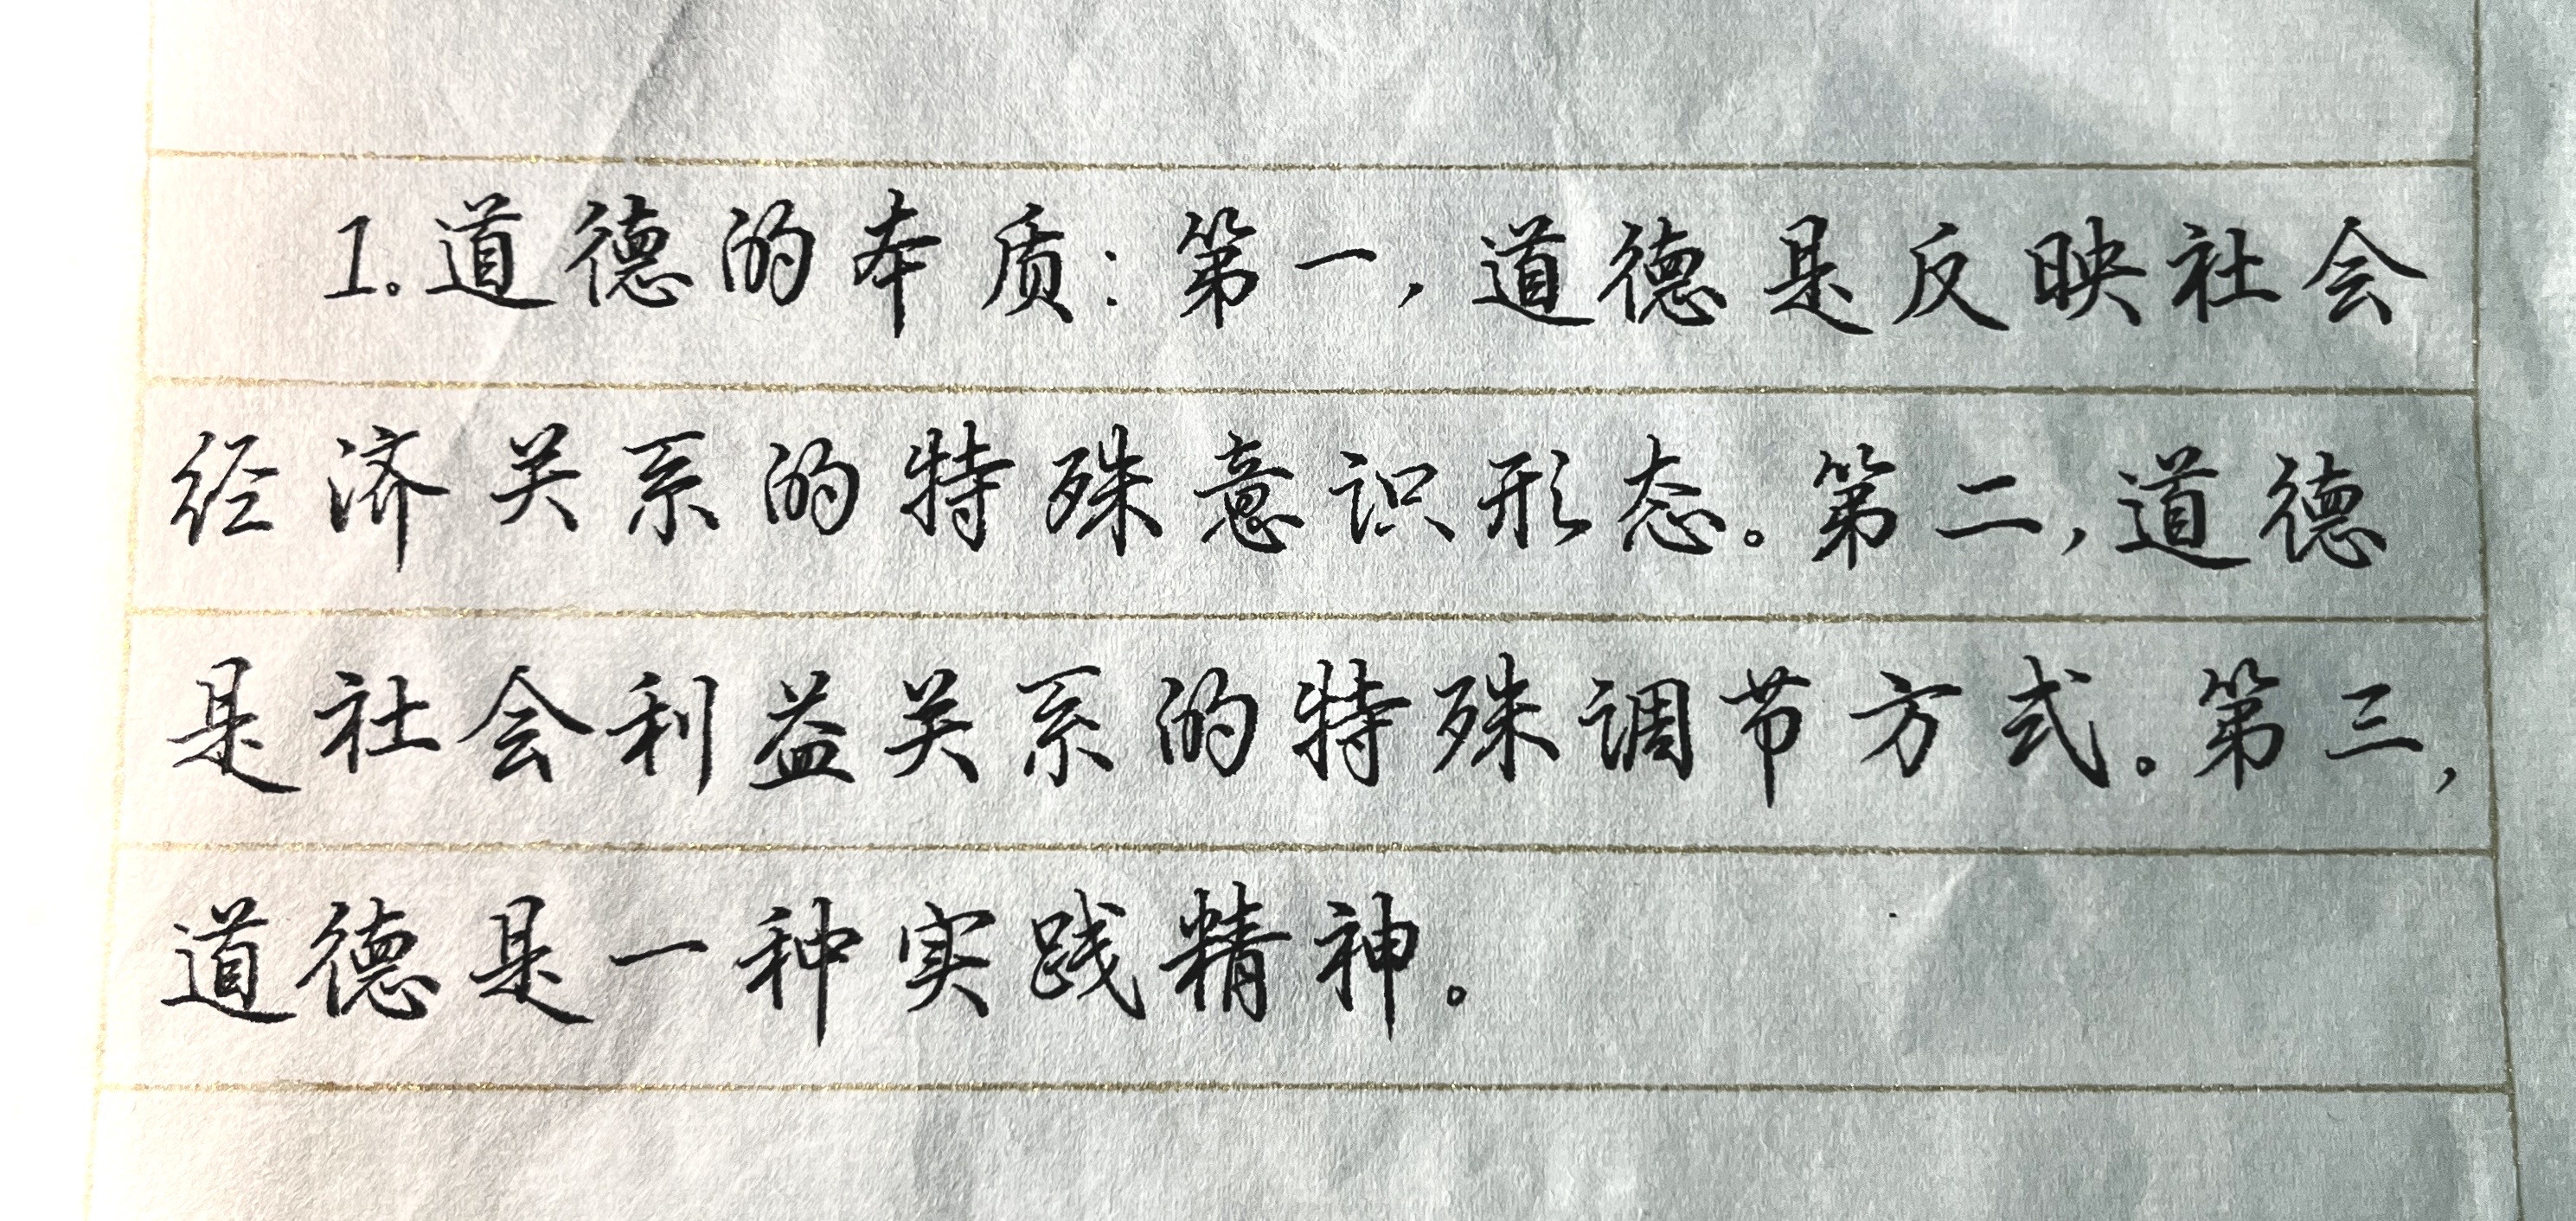 1.道德的本质：第一，道德是反映社会
经济关系的特殊意识形态。第二，道德
是社会利益关系的特殊调节方式。第三，
道德是一种实践精神。